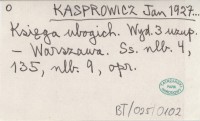 O KASPROWICZ Jan 1927...
Księga ubogich. Wyd. 3 uzup.
- Warszawa. Ss. nlb. 4,
135, nlb. 9, opr.
BT/025/0102